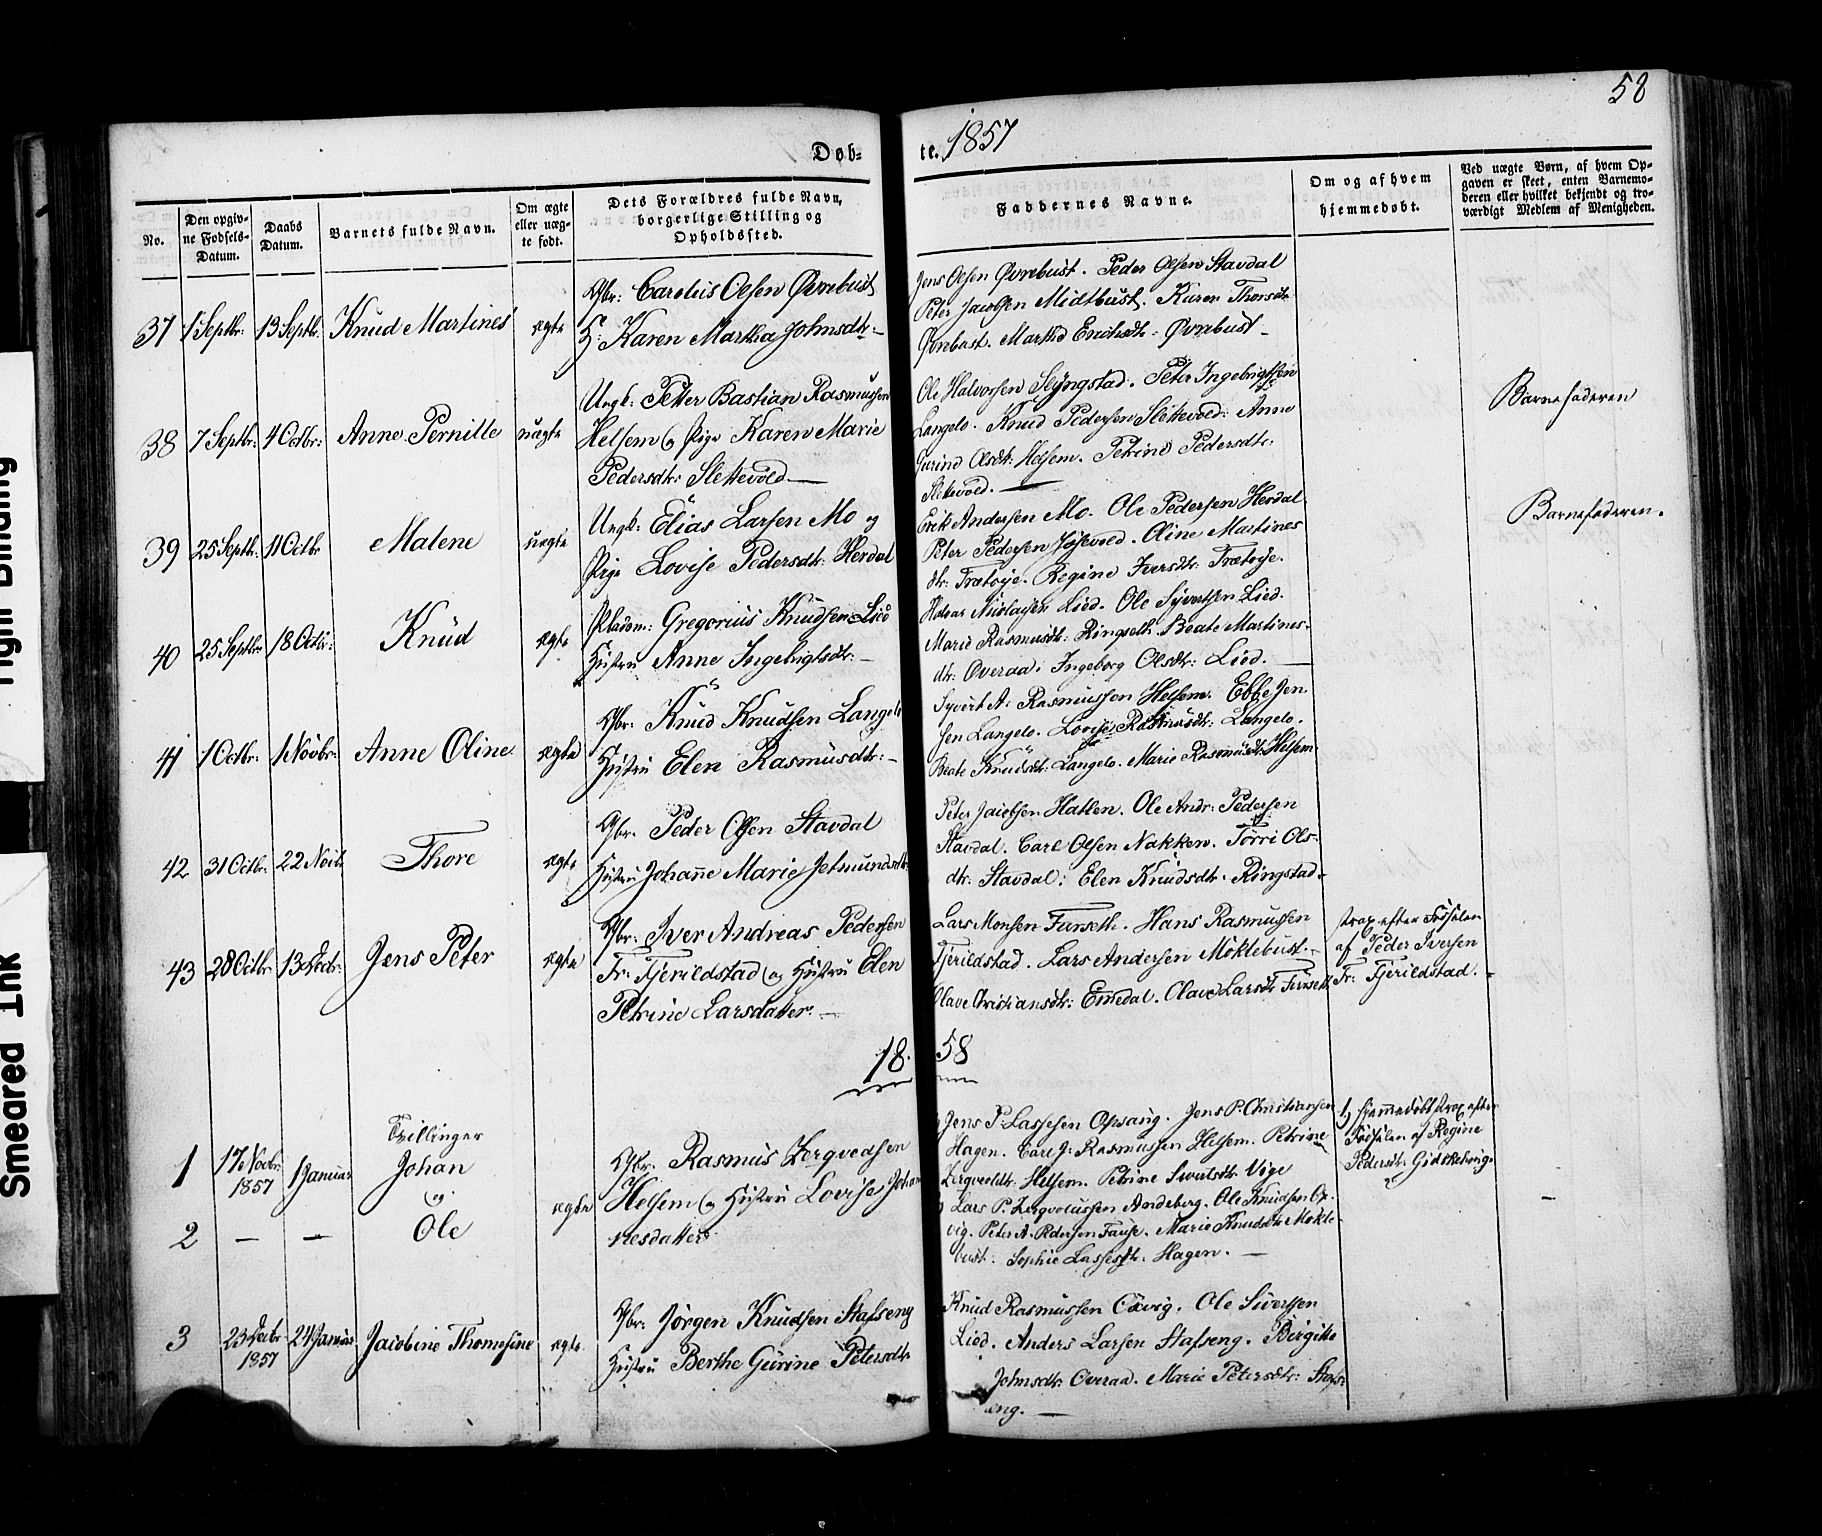 58
Døb-
te. 1857
No.
Den opgiv-
ne Fødsels-
Datum.
Daabs
Datum.
Barnets fulde Navn.
Om ægte
eller uæg-
te født.
Dets Forældres fulde Navn,
borgerlige Stilling og
Opholdssted.
Faddernes Navne.
Om og af hvem
hjemmedøbt.
Ved uægte Børn, af hvem Op-
gaven er skeet, enten Barnemo-
deren eller hvilket bekjendt og tro-
værdigt Medlem af Menigheden.
37 1 Septbr: 13 Septbr. Knud Martines ægte
Gbr: Carolus Olsen Øvrebust
H: Karen Martha Johnsdtr:
Jens Olsen Øvrebust. Peder Olsen Stavdal
Peter Jacobsen Midtbust. Karen Thorsdtr
Øvrebust. Marthe Erichsdtr: Øvrebust
38 7 Septbr: 4 Octbr: Anne Pernille uægte
Ungk: Petter Bastian Rasmussen
Helsem og Pige Karen Marie
Pedersdtr: Slettevold
Ole Halvorsen Slyngstad. Peter Ingebrigtsen
Langelo. Knud Pedersen Slettevold. Anne
Gurine Olsdtr: Helsem. Petrine Pedersdtr:
Slettevold.
Barnefaderen
39 25 Septbr: 11 Octbr Malene uægte
Ungk: Elias Larsen Mo og
Pige Lovise Pedersdtr: Herdal
Erik Andersen Mo. Ole Pedersen Herdal
Peter Pedersen Vogevold. Oline Martines
dtr: Frætøie. Regine Iversdtr: Frætøie.
Barnefaderen.
40 25 Septbr: 18 Octbr: Knud ægte
Pladsm: Gregorius Knudsen Lied
Hustru Anne Ingebrigtsdtr:
Nicolaysen Lied. Ole Syvertsen Lied.
Marie Rasmusdtr: Ringseth. Beate Martines-
dtr: Overaa. Ingeborg Olsdtr: Lied.
41 1 Octbr: 1 Novbr: Anne Oline ægte
Gbr: Knud Knudsen Langelo
Hustru Elen Rasmusdtr:
Syvert A: Rasmussen Helsem. Ebbe Jen-
sen Langelo. Lovise Rasmusdtr: Langelo.
Beate Knudsdtr: Langelo. Marie Rasmusdtr: Helsem.
42 31 Octbr: 22 Novb. Thore ægte
Gbr. Peder Olsen Stavdal
Hustru Johanne Marie Jetmundsdtr
Peter Jacobsen Hatlen. Ole Andr: Pedersen
Stavdal. Carl Olsen Nakken. Torri Ols-
dtr: Stavdal: Elen Knudsdtr. Ringstad.
43 28 Octbr 13 Decbr: Jens Peter ægte
Gbr: Iver Andreas Pedersen
Fr: Fjerildstad og Hustru Elen
Petrine Larsdatter.
Lars Monsen Furseth. Hans Rasmussen
Fjerildstad. Lars Andersen Møklebust
Olave Christiansdtr: Emedal. Olave Larsdtr Furseth
strax efter Fødselen
af Peder Iversen
Fr: Fjerildstad.
18 58
Tvillinger
1 17 Novbr: 1857 1 Januar Johan
og
2 — — Ole
ægte
Gbr. Rasmus Zerqvedsen
Helsem og Hustru Lovise Johan
nesdatter
Jens P. Lassesen Opsang. Jens P. Christiansen
Hagen. Carl J: Rasmussen Helsem. Petrine
Zerqveddtr: Helsem. Petrine Sivertsdtr Vige
Lars P. Andeberg. Ole Knudsen Ox-
vig. Peter A. Pedersen Fause. Marie Knudsdtr Møkle-
bust. Sophie Lassesdtr. Hagen.
1, hjemmedøbt strax efter
Fødselen af Regine
Pedersdtr: Gidskehoug.
3 23 Decbr 1857 24 Januar Jacobine Thomesine ægte
Gbr: Jørgen Knudsen Stafseng
Hustru Berthe Gurine Petersdtr
Knud Rasmussen Oxvig. Ole Sivertsen
Lied. Anders Larsen Stafseng. Birgitte
Johnsdtr: Overaa. Marie Petersdtr: Stafs-
eng.
Tight Binding
Smeared Ink